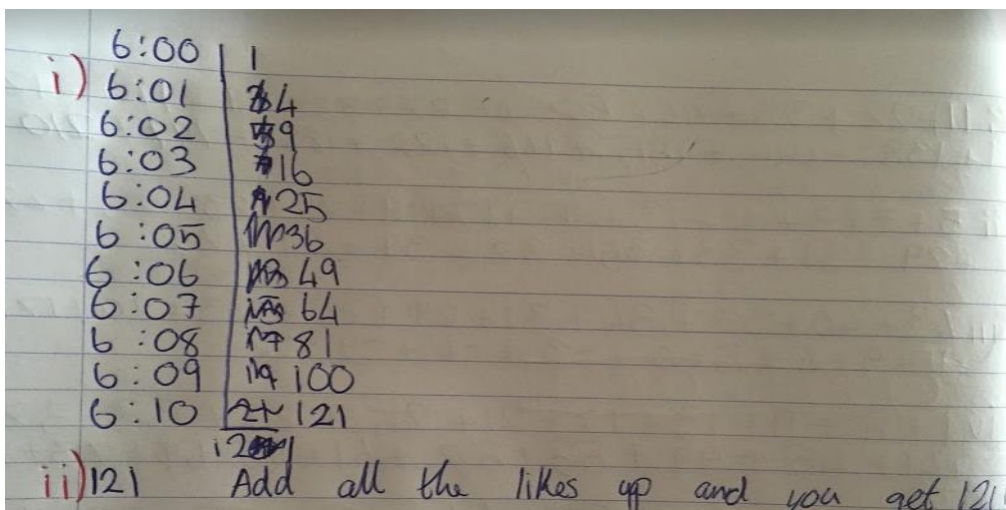 6:00 1
i) 6:01 4
6:02 9
6:03 16
6:04 25
6:05 36
6:06 49
6:07 64
6:08 81
6:09 100
6:10 121
ii) 121 Add all the likes up and you get 121